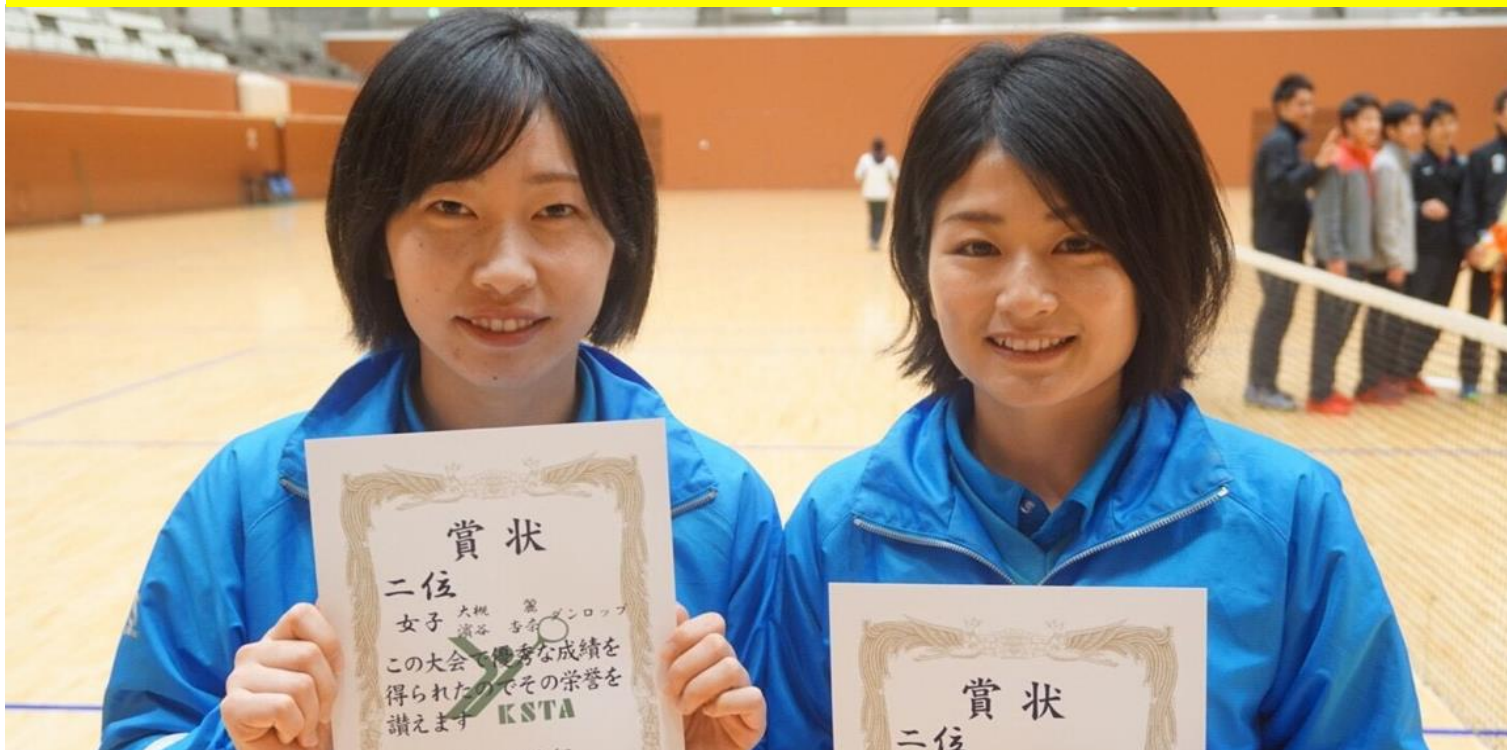 賞状
二位
女子 大槻 麗
濱谷 杏奈 ダンロップ
この大会で優秀な成績を
得られたのでその栄誉を
讃えます
KSTA
賞状
二位